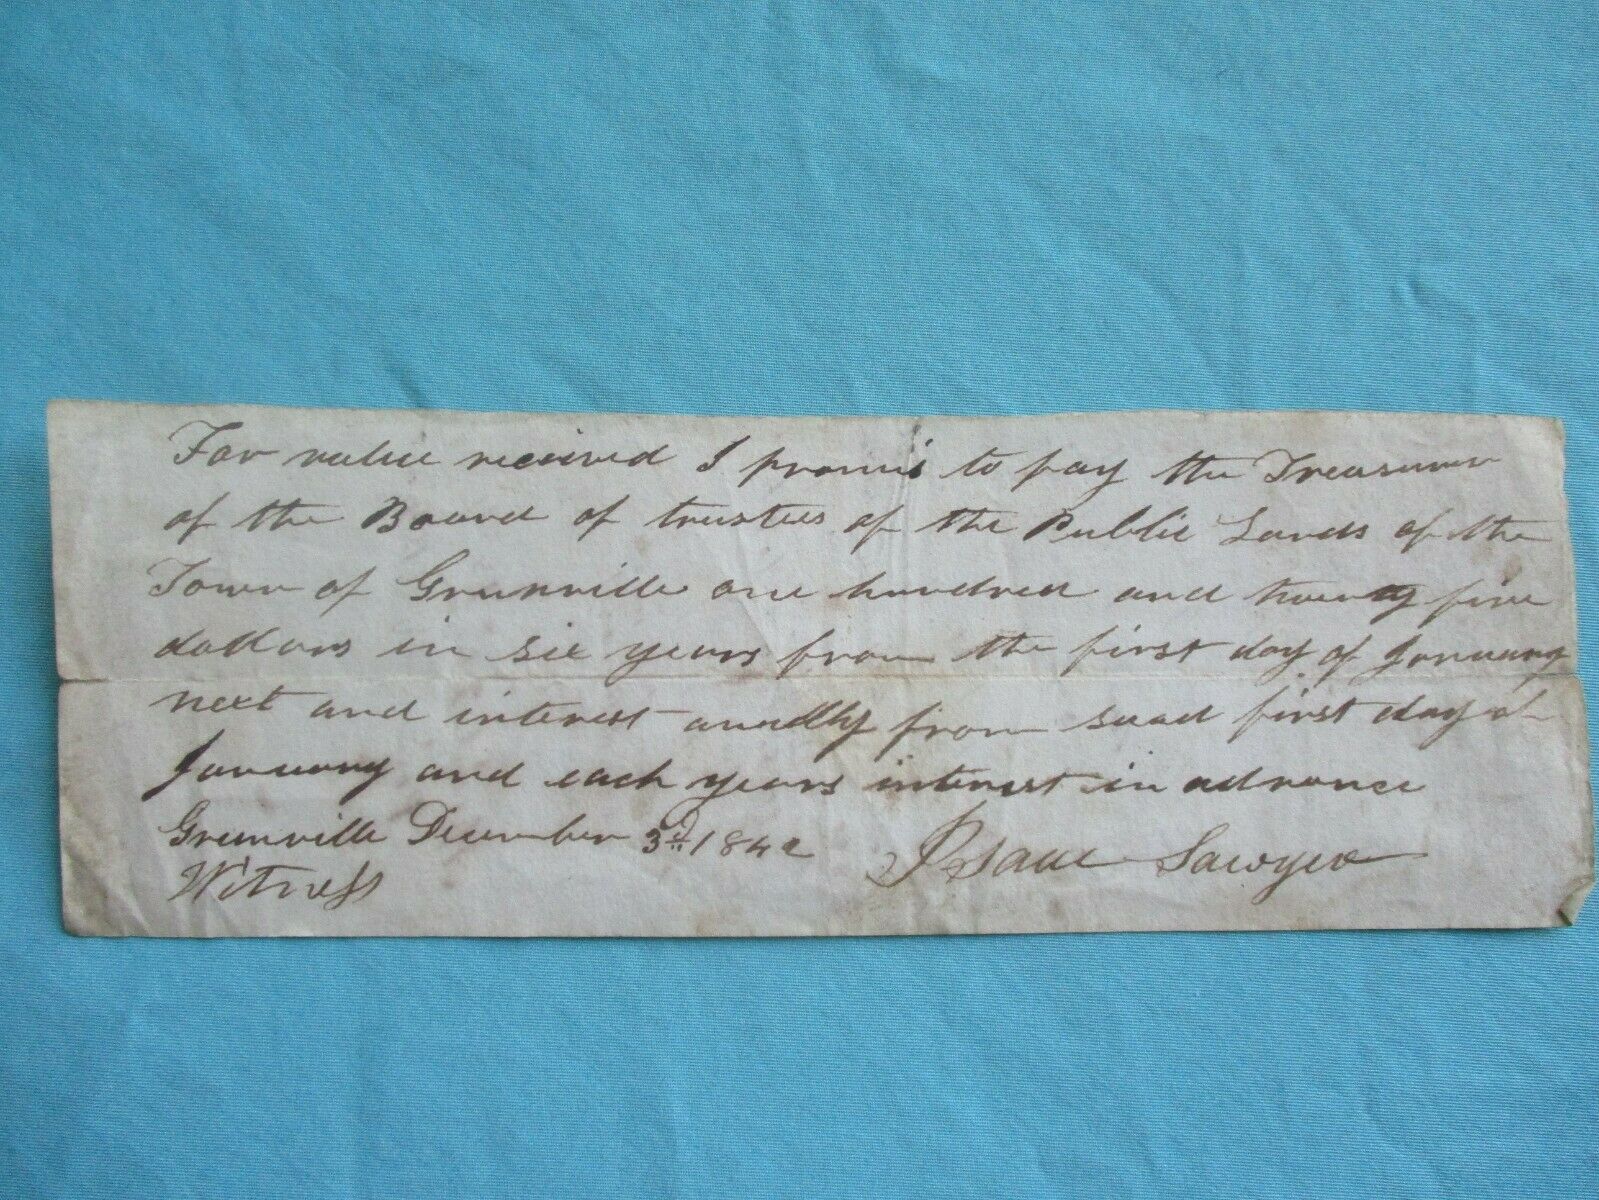 For value received I promis to pay the Treasurer
of the Board of trustees of the Public Lands of the
Town of Greenville one hundred and twenty five
dollars in six years from the first day of January
next and interest anually from said first day of
January and each years interest in advance
Greenville December 3d 1842
Isaac Sawyer
Witness